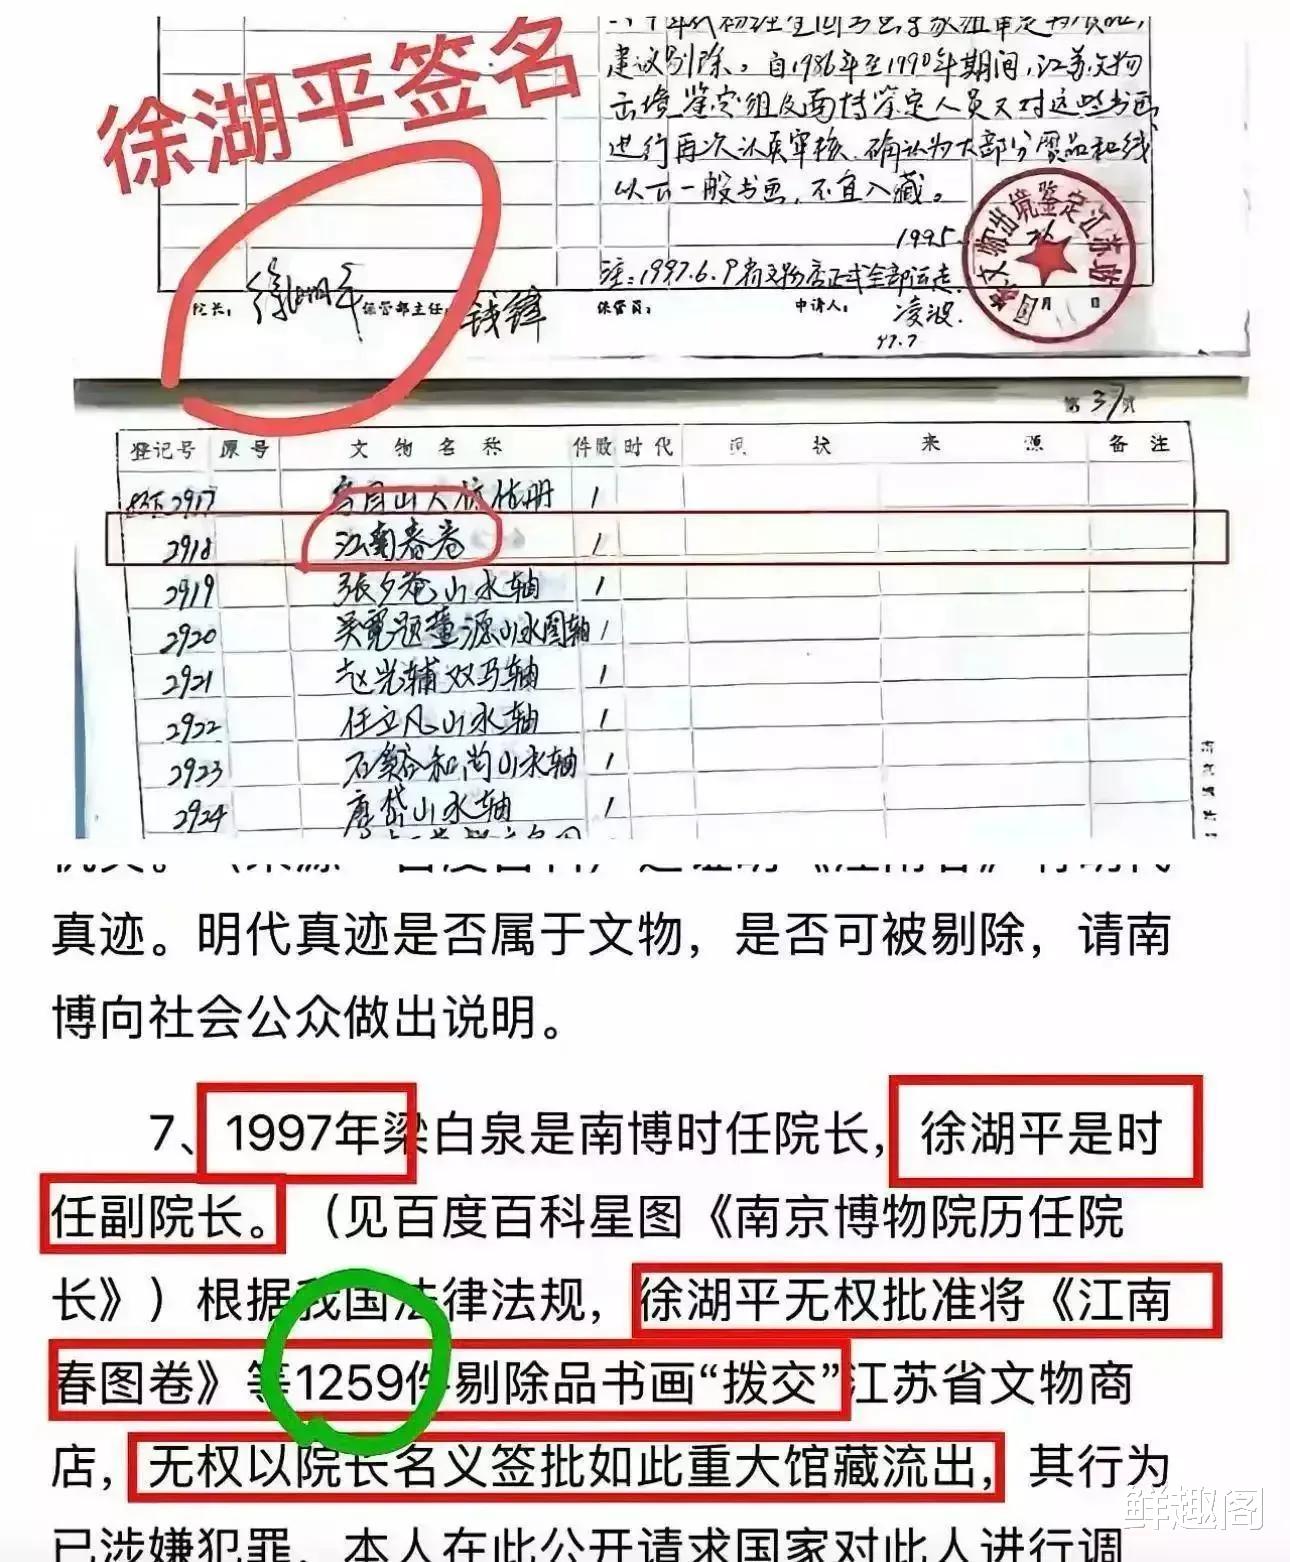 徐湖平签名
建议剔除。自1986年至1990年期间,江苏文物
出境鉴定组及面特鉴定人员又对这些书画
进行再次认真审核、确认为大部分赝品和线
以下一般书画,不宜入藏。
1995
注:1997.6.9
院长: 徐湖平 保管部主任: 钱锋 保管员: 申请人: 凌波.
97.7
文物出境鉴定江苏站
月 日
第37页
登记号 原号 文物名称 件数 时代 现状 来源 备注
2917 1
2918 江南春卷 1
2919 張夕菴山水轴 1
2920 吴宽题董源山水图轴 1
2921 赵光辅双马轴 1
2922 任立凡山水轴 1
2923 石谿和尚山水轴 1
2924 唐岱山水轴 1
真迹。明代真迹是否属于文物,是否可被剔除,请南
博向社会公众做出说明。
7、1997年梁白泉是南博时任院长,徐湖平是时
任副院长。(见百度百科星图《南京博物院历任院
长》)根据我国法律法规,徐湖平无权批准将《江南
春图卷》等1259件剔除品书画“拨交”江苏省文物商
店,无权以院长名义签批如此重大馆藏流出,其行为
已涉嫌犯罪。本人在此公开请求国家对此人进行调
鲜趣阁